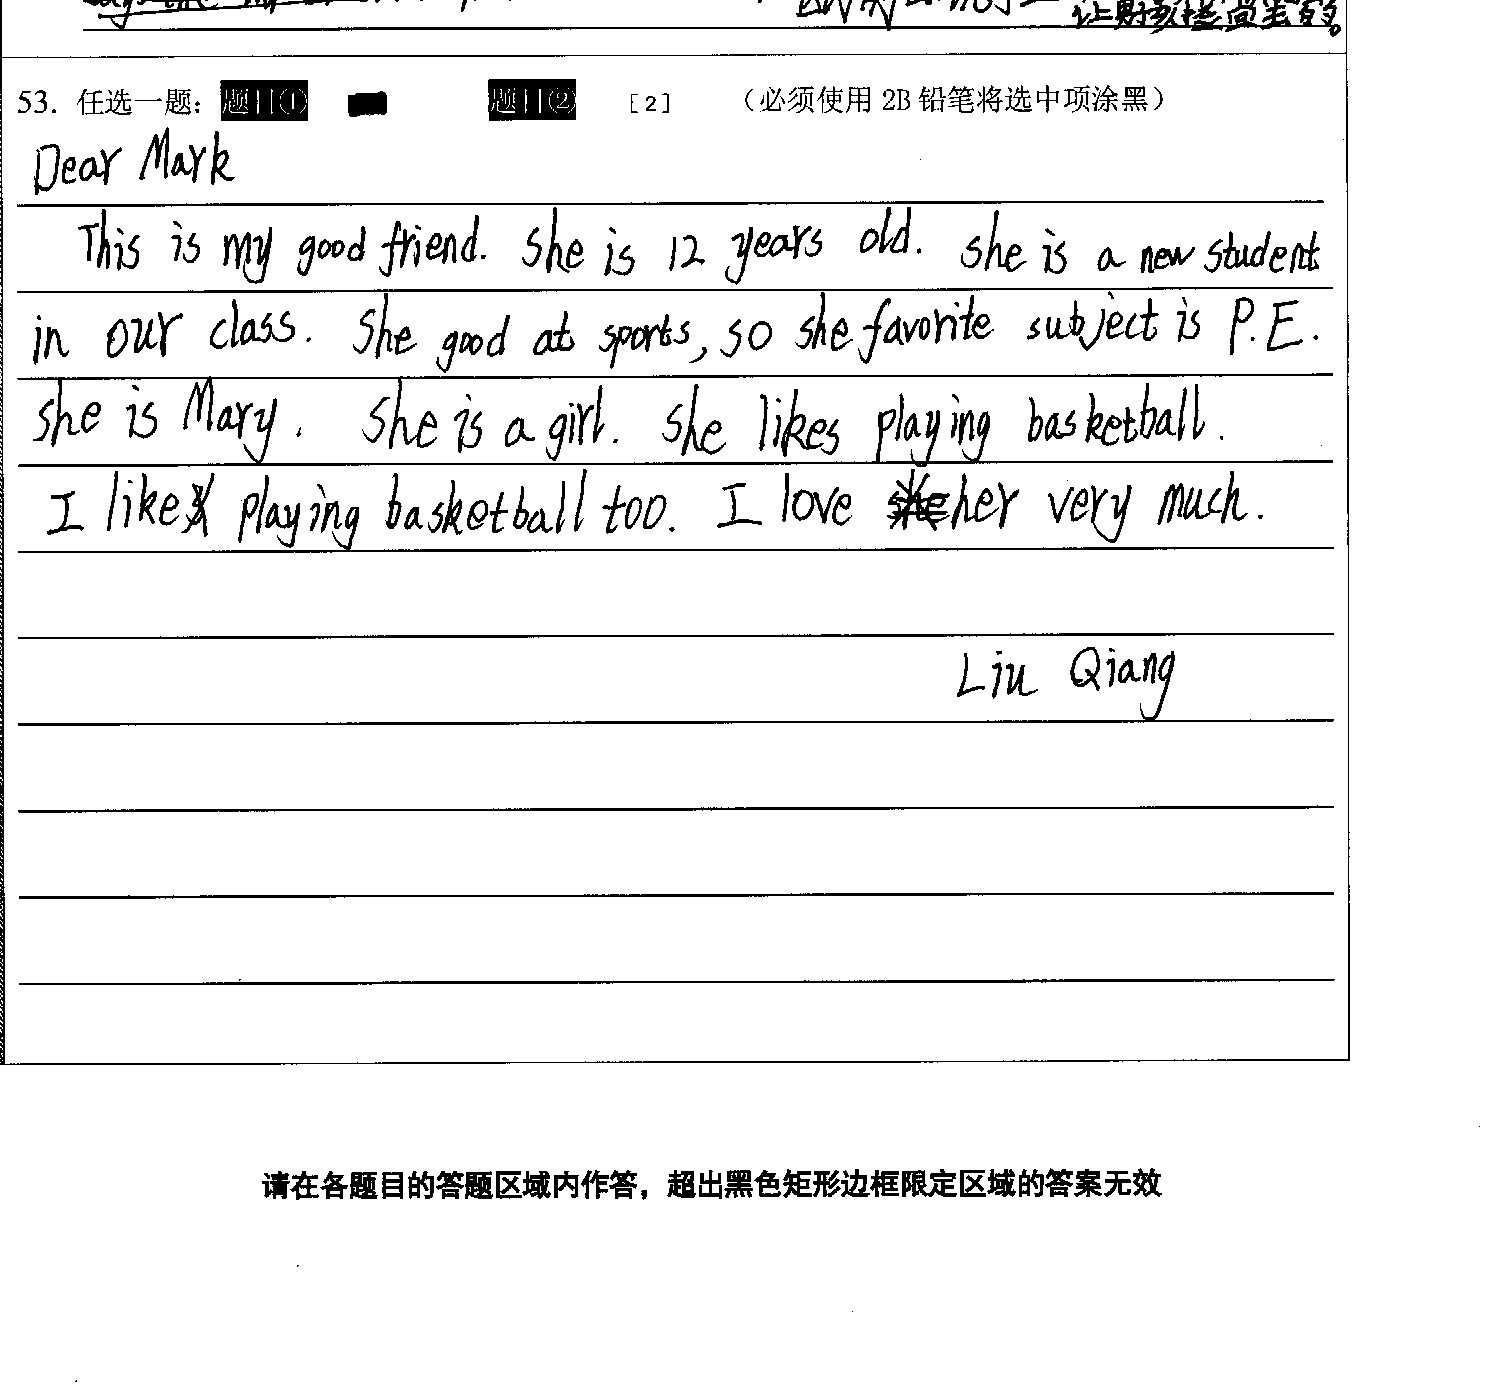 让财务楼尚坐的。
53. 任选一题: 题目① 题目② [2] (必须使用 2B 铅笔将选中项涂黑)
Dear Mark
This is my good friend. She is 12 years old. she is a new student
in our class. She good at sports, so she favorite subject is P.E.
she is Mary. She is a girl. She likes playing basketball.
I like playing basketball too. I love her very much.
Liu Qiang
请在各题目的答题区域内作答，超出黑色矩形边框限定区域的答案无效